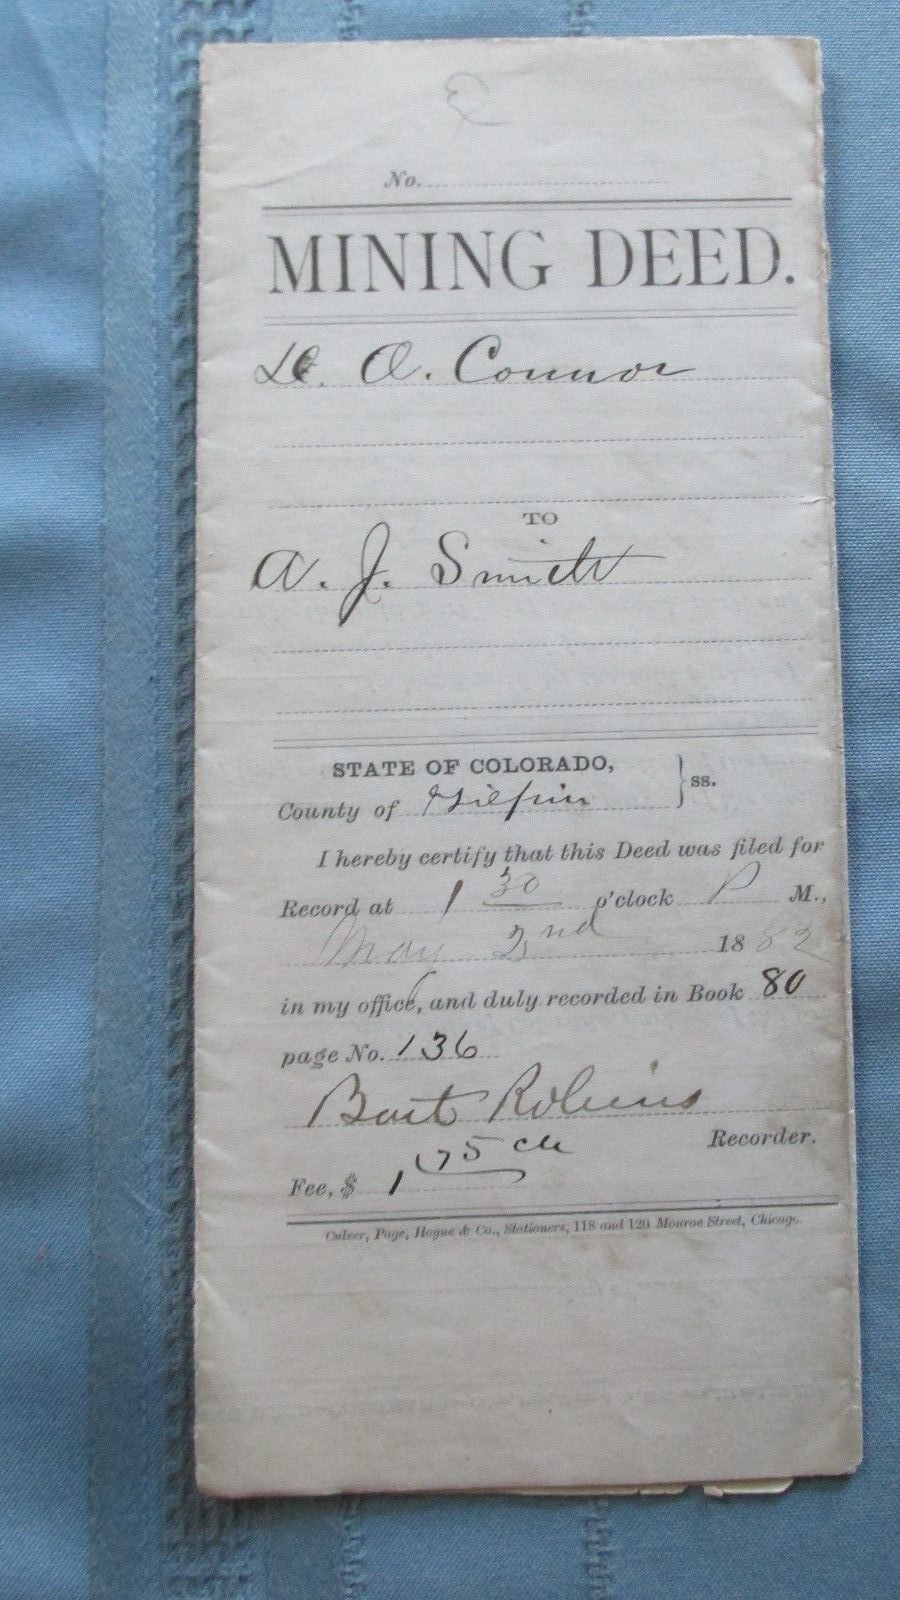 No.
MINING DEED.
O. Connor
TO
A. J. Smith
STATE OF COLORADO,
County of Gilpin } ss.
I hereby certify that this Deed was filed for
Record at 1 30 o'clock P M.,
May 2nd 1882
in my office, and duly recorded in Book 80
page No. 136
Bart Robins
Recorder.
Fee, $ 1 75 cts
Culver, Page, Hoyne & Co., Stationers, 118 and 120 Monroe Street, Chicago.